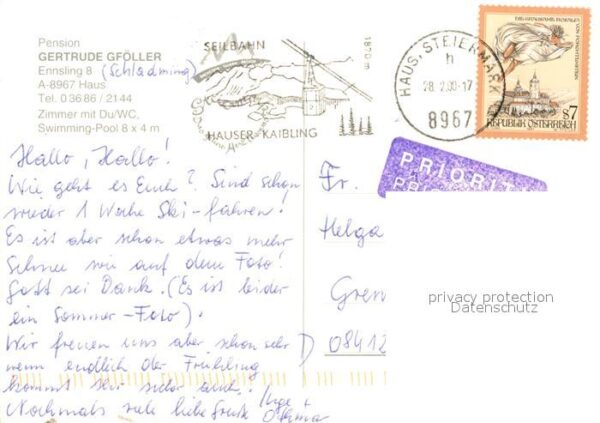 Pension
GERTRUDE GFÖLLER
Ennsling 8 (Schladming)
A-8967 Haus
Tel. 03686 / 2144
Zimmer mit Du/WC,
Swimming-Pool 8 x 4 m
SEILBAHN
1870 m
HAUSER-KAIBLING
HAUS, STEIERMARK
h
28. 2.00-17
8967
VON
S7
REPUBLIK ÖSTERREICH
PRIORITY
Hallo, Hallo!
Wie geht es Euch? Sind schon
wieder 1 Woche Ski-fahren!
Es ist aber schon etwas mehr
Schnee wie auf dem Foto!
Gott sei Dank. (Es ist leider
ein Sommer-Foto).
Wir freuen uns aber schon sehr
wenn endlich der Frühling
kommt
Nochmals viele liebe Grüße
Inge +
Fr.
Helga
Gren
D 08412
privacy protection
Datenschutz